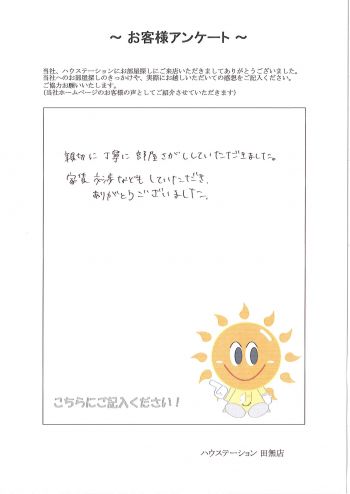 ～ お客様アンケート ～
当社、ハウステーションにお部屋探しにご来店いただきましてありがとうございました。
当社へのお部屋探しのきっかけや、実際にお越しいただいての感想をご記入ください。
ご協力お願いいたします。
(当社ホームページのお客様の声としてご紹介させていただきます)
親切に丁寧に部屋さがししていただきました。
家賃交渉などもしていただき、
ありがとうございました。
こちらにご記入ください！
ハウステーション 田無店